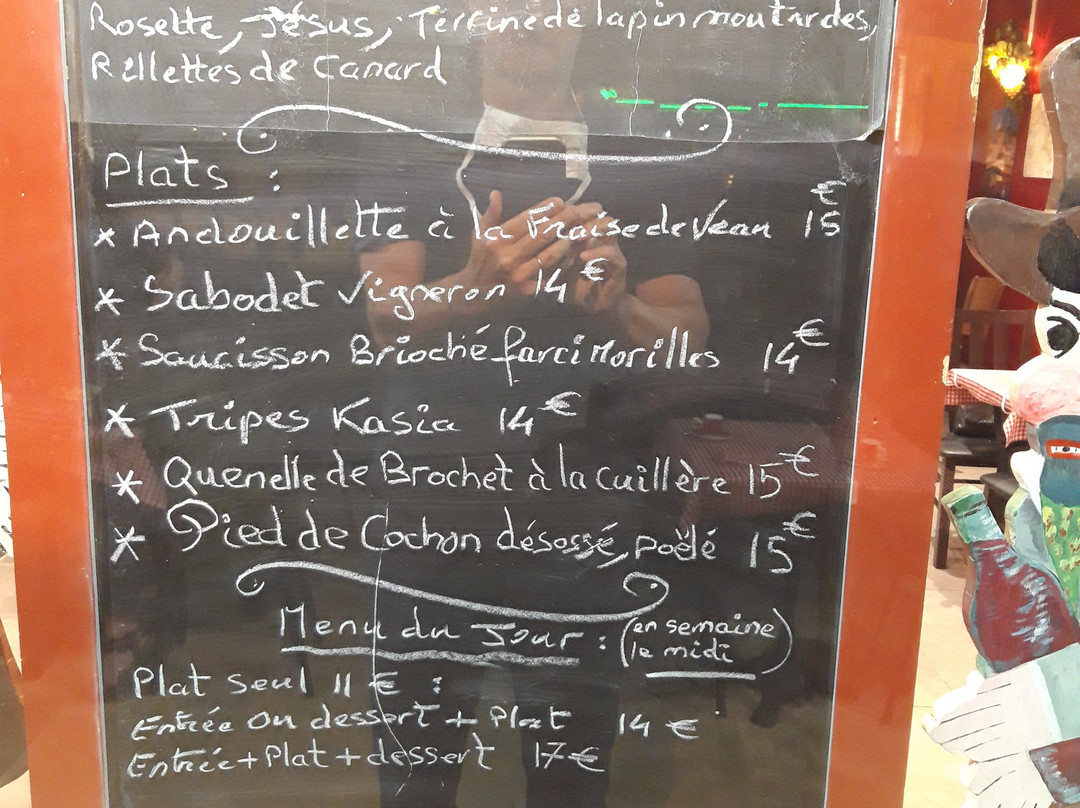 Rosette, Jésus, Terrine de lapin moutardes,
Rillettes de Canard
Plats :
* Andouillette à la Fraise de Veau 15 €
* Sabodet Vigneron 14 €
* Saucisson Brioché farci Morilles 14 €
* Tripes Kasia 14 €
* Quenelle de Brochet à la cuillère 15 €
* Pied de Cochon désossé, poêlé 15 €
Menu du Jour : (en semaine
le midi)
Plat seul 11 € :
Entrée ou dessert + Plat 14 €
Entrée + Plat + dessert 17 €